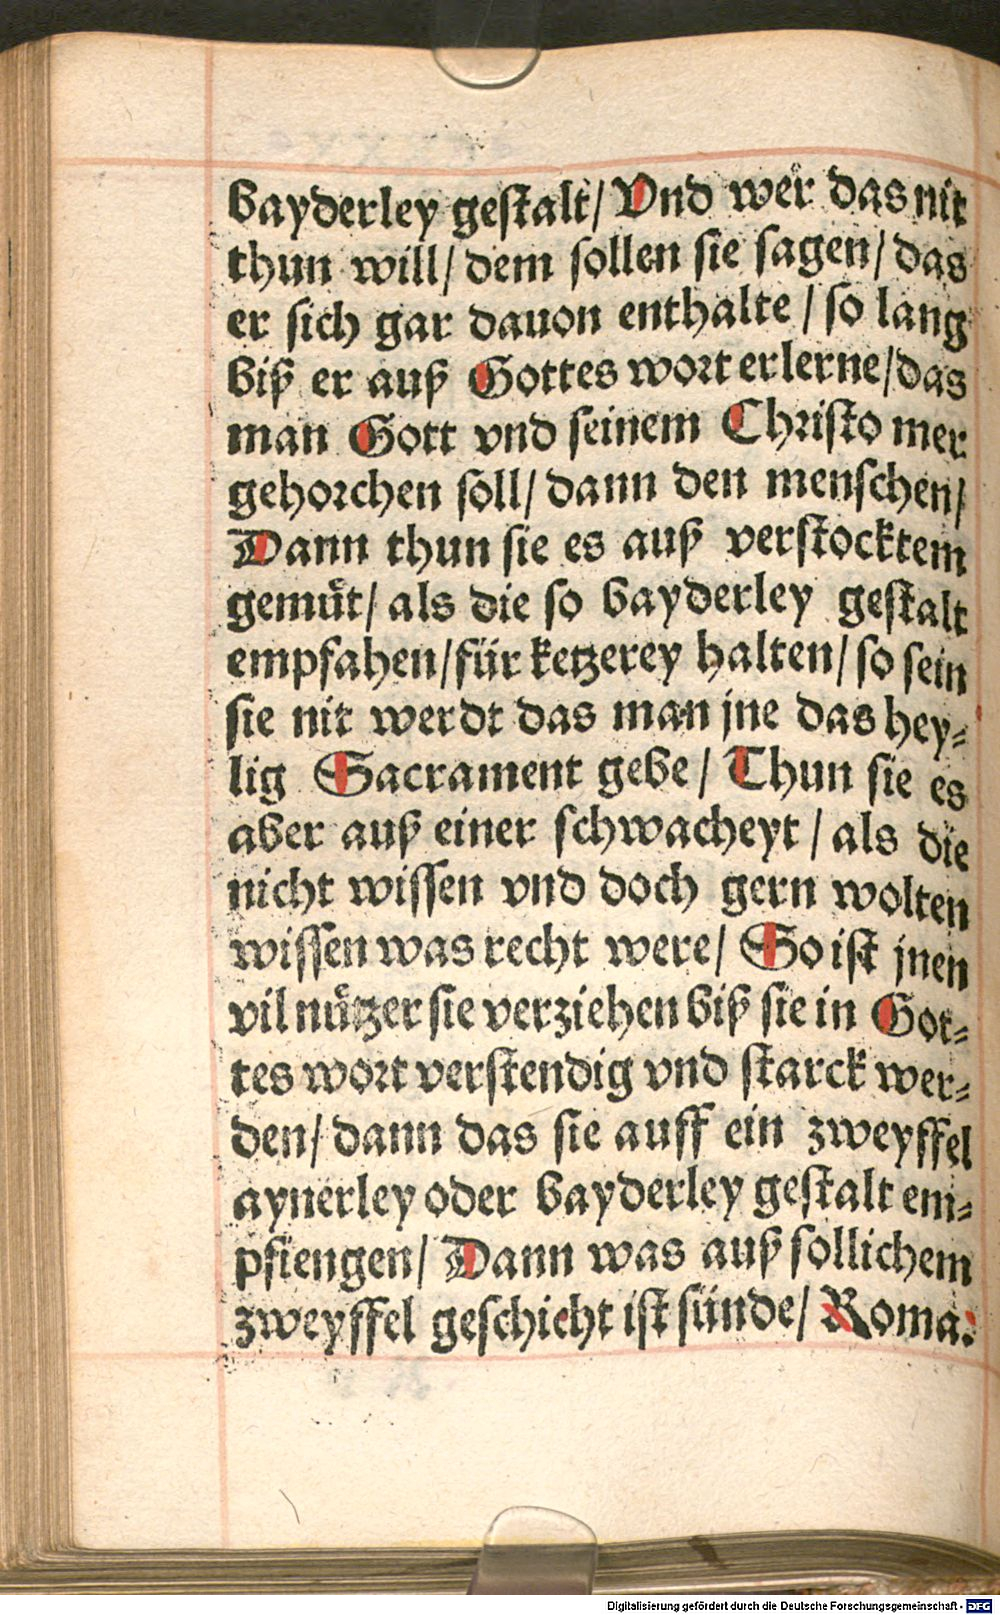 bayderley gestalt/ Vnd wer das nit
thun will/ dem sollen sie sagen/ das
er sich gar dauon enthalte / so lang
biß er auß Gottes wort erlerne/das
man Gott vnd seinem Christo mer
gehorchen soll/ dann den menschen/
Dann thun sie es auß verstocktem
gemuͤt/ als die so bayderley gestalt
empfahen/für ketzerey halten/ so sein
sie nit werdt das man jne das hey⸗
lig Sacrament gebe / Thun sie es
aber auß einer schwacheyt / als die
nicht wissen vnd doch gern wolten
wissen was recht were/ So ist jnen
vil nuͤtzer sie verziehen biß sie in Got⸗
tes wort verstendig vnd starck wer⸗
den/ dann das sie auff ein zweyffel
aynerley oder bayderley gestalt em⸗
pfiengen/ Dann was auß sollichem
zweyffel geschicht ist sünde/ Roma.
Digitalisierung gefördert durch die Deutsche Forschungsgemeinschaft - DFG